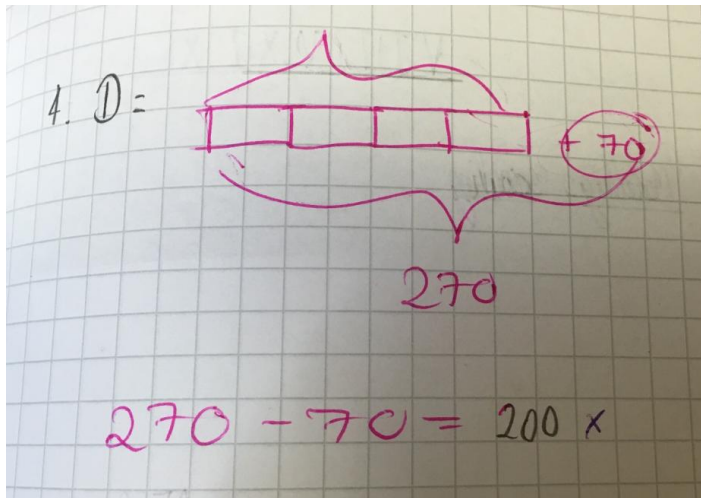 1. D =
+ 70
270
270 - 70 = 200 x